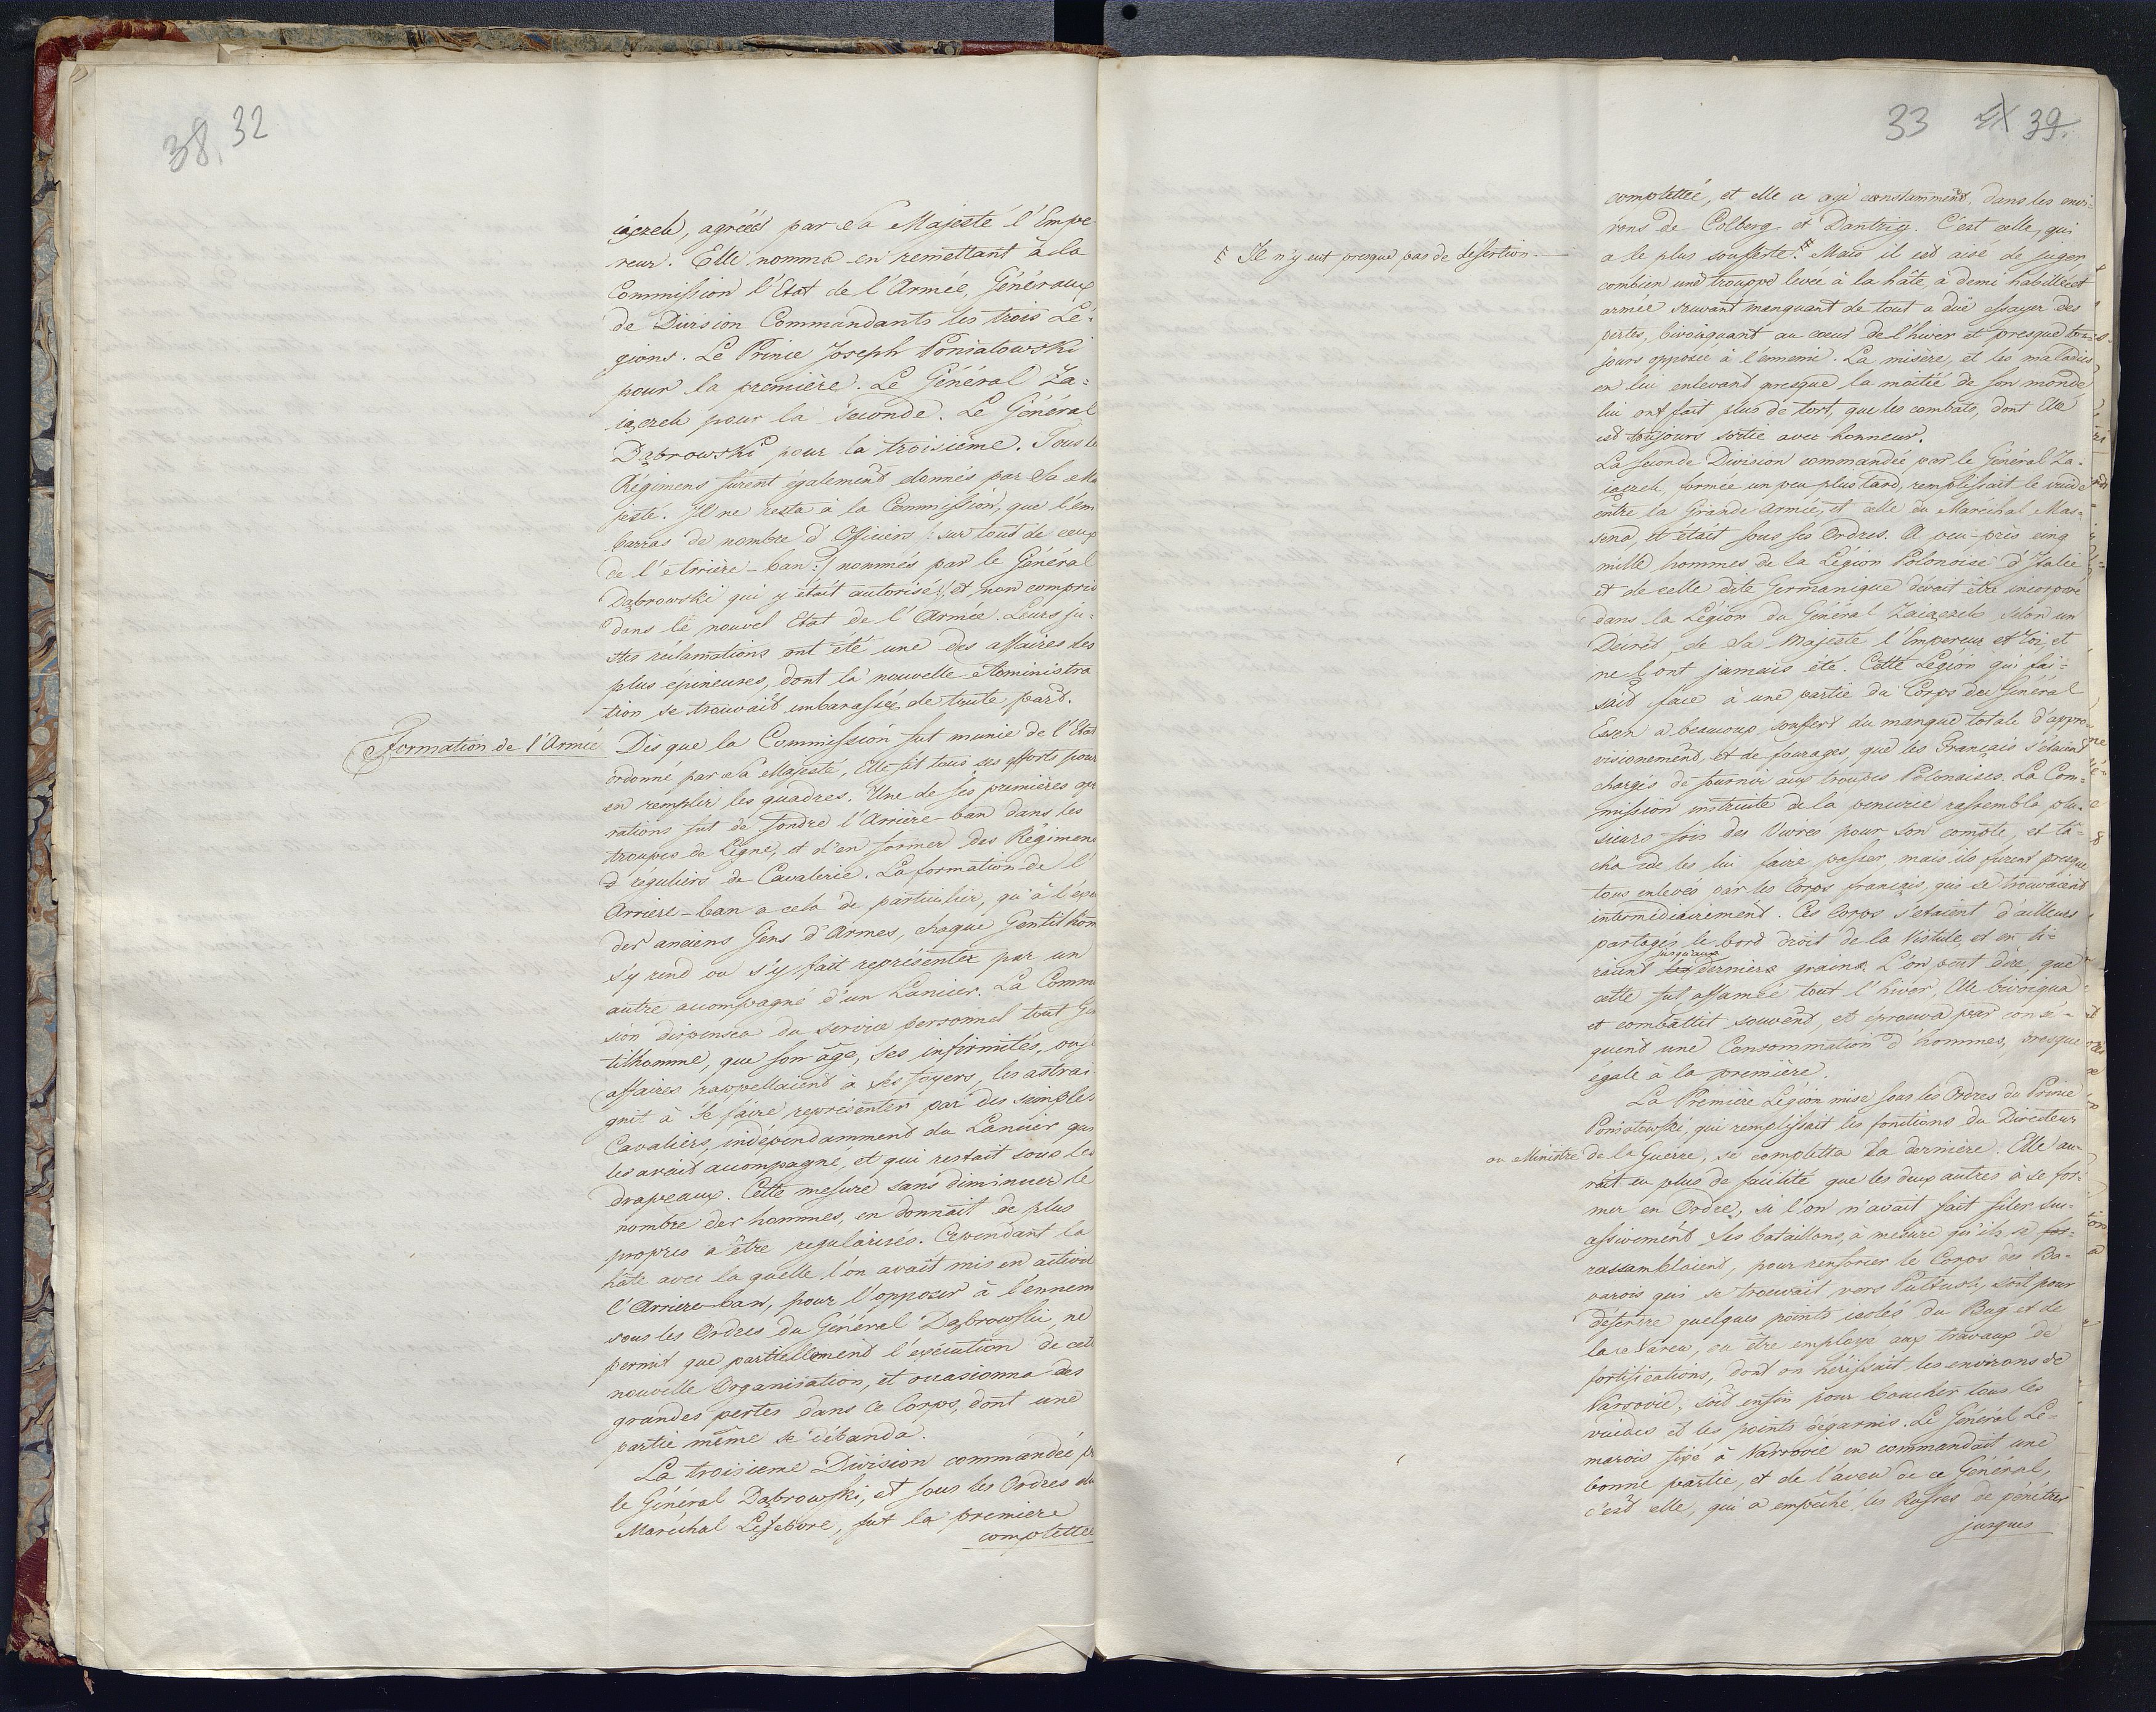 38, 32
iączek, agréés par Sa Majesté l'Empe-
reur. Elle nomma en remettant à la
Commission l'Etat de l'Armée, Généraux
de Division Commandants les trois Lé-
gions. Le Prince Joseph Poniatowski
pour la première. Le Général Za-
iączek pour la seconde. Le Général
Dąbrowski pour la troisième. Tous le
Régimens furent également donnés par Sa Ma
jesté. Il ne resta à la Commission, que l'em
barras de nombre d'Officiers /: sur tout de ceux
de l'Arrière-ban :/ nommés par le Général
Dąbrowski qui y était autorisé, et non compris
dans le nouvel Etat de l'Armée. Leurs ju-
stes réclamations ont été une des affaires les
plus épineuses, dont la nouvelle Administra
tion se trouvait embarassée de toute part.
Formation de l'Armée
Dès que la Commission fut munie de l'Etat
ordonné par Sa Majesté, Elle fit tous ses efforts pour
en remplir les quadres. Une de ses premières opé
rations fut de fondre l'Arrière-ban dans les
troupes de Ligne, et d'en former des Régimens
d réguliers de Cavalerie. La formation de l'
Arrière-ban a cela de particulier, qu'à l'exe
der anciens Gens d'Armes, chaque Gentilhom
s'y rend ou s'y fait représenter par un
autre accompagné d'un Lancier. La Commi
sion dispensea du service personnel tout Gen
tilhomme, que son âge, ses infirmités, ou s
affaires rappellaient à ses foyers, les astrai
gnit à se faire représenter par des simples
Cavaliers, indépendamment du Lancier qui
les avait accompagné, et qui restait sous les
drapeaux. Cette mesure sans diminuer le
nombre der hommes, en donnait de plus
propres à être regularisés. Cependant la
hâte avec laquelle l'on avait mis en activit
l'Arriere-ban, pour l'opposer à l'ennem
sous les Ordres du Général Dąbrowski, ne
permit que partiellement l'exécution de cett
nouvelle Organisation, et occasionna des
grandes pertes dans ce Corps, dont une
partie même se débanda.
La troisième Division commandée p
le Général Dąbrowski, et sous les Ordres du
Maréchal Lefebvre, fut la première
complettée
33 39.
complettée, et elle a agi constamment, dans les envi-
rons de Colberg et Dantzig. C'est celle, qui
a le plus soufferte. # Mais il est aisé de juger,
# Il n'y eut presque pas de desertion.
combien une trouppe levée à la hâte, à demi habillée et
armée souvant manquant de tout a dûe essayer des
pertes, bivouaquant au coeur de l'hiver et presque tou-
jours opposée à l'ennemi. La misère, et les maladies
en lui enlevant presque la moitié de son monde
lui ont fait plus de tort, que les combats, dont Elle
est toujours sortie avec honneur.
La seconde Division commandée par le Général Za-
iączek, formée un peu plus tard, remplissait le vuide
entre la Grande Armée, et celle du Maréchal Mas-
sena, et était sous ses Ordres. A peu-près cinq
mille hommes de la Légion Polonoise d'Italie
et de celle dite Germanique devait être incorporé
dans la Légion du Général Zaiączek selon un
Décret, de Sa Majesté l'Empereur et Roi, et
ne l'ont jamais été. Cette Légion qui fai-
sait face à une partie du Corps du Général
Essen a beaucoup souffert du manque totale d'appro-
visionement, et de fourages, que les Français s'étaient
chargés de fournir aux troupes Polonaises. La Com-
mission instruite de la penurie rassembla plu-
sieurs fois des Vivres pour son compte, et tâ-
cha de les lui faire passer, mais ils furent presque
tous enlevés par les Corps français, qui se trouvaient
intermédiairement. Ces Corps s'étaient d'ailleurs
partagés le bord droit de la Vistule, et en ti-
raient jusqu'aux derniers grains. L'on peut dire, que
cette fut affamée tout l'hiver, Elle bivouqua
et combattit souvent, et eprouva par consé-
quent une Consommation d'hommes, presque
egale à la première.
La Première Légion mise sous les Ordres du Prince
Poniatowski, qui remplissait les fonctions du Directeur
ou Ministre de la Guerre, se completta la dernière. Elle au-
rait eu plus de facilité que les deux autres à se for-
mer en Ordre, si l'on n'avait fait filer suc-
assivement ses bataillons, à mesure qu'ils se for-
rassamblaient, pour renforcer le Corps des Ba-
varois qui se trouvait vers Pultusk, soit pour
défendre quelques points isolés du Bug et de
la Narew, ou être employé aux travaux de
fortifications, dont on hérissait les environs de
Varsovie, soit enfin pour boucher tous les
vuides et les points dégarnis. Le Général Le-
marois fixé à Varsovie en commandait une
bonne partie, et de l'aveu de ce Général,
c'est elle, qui a empêché les Russes de pénétrer
jusques